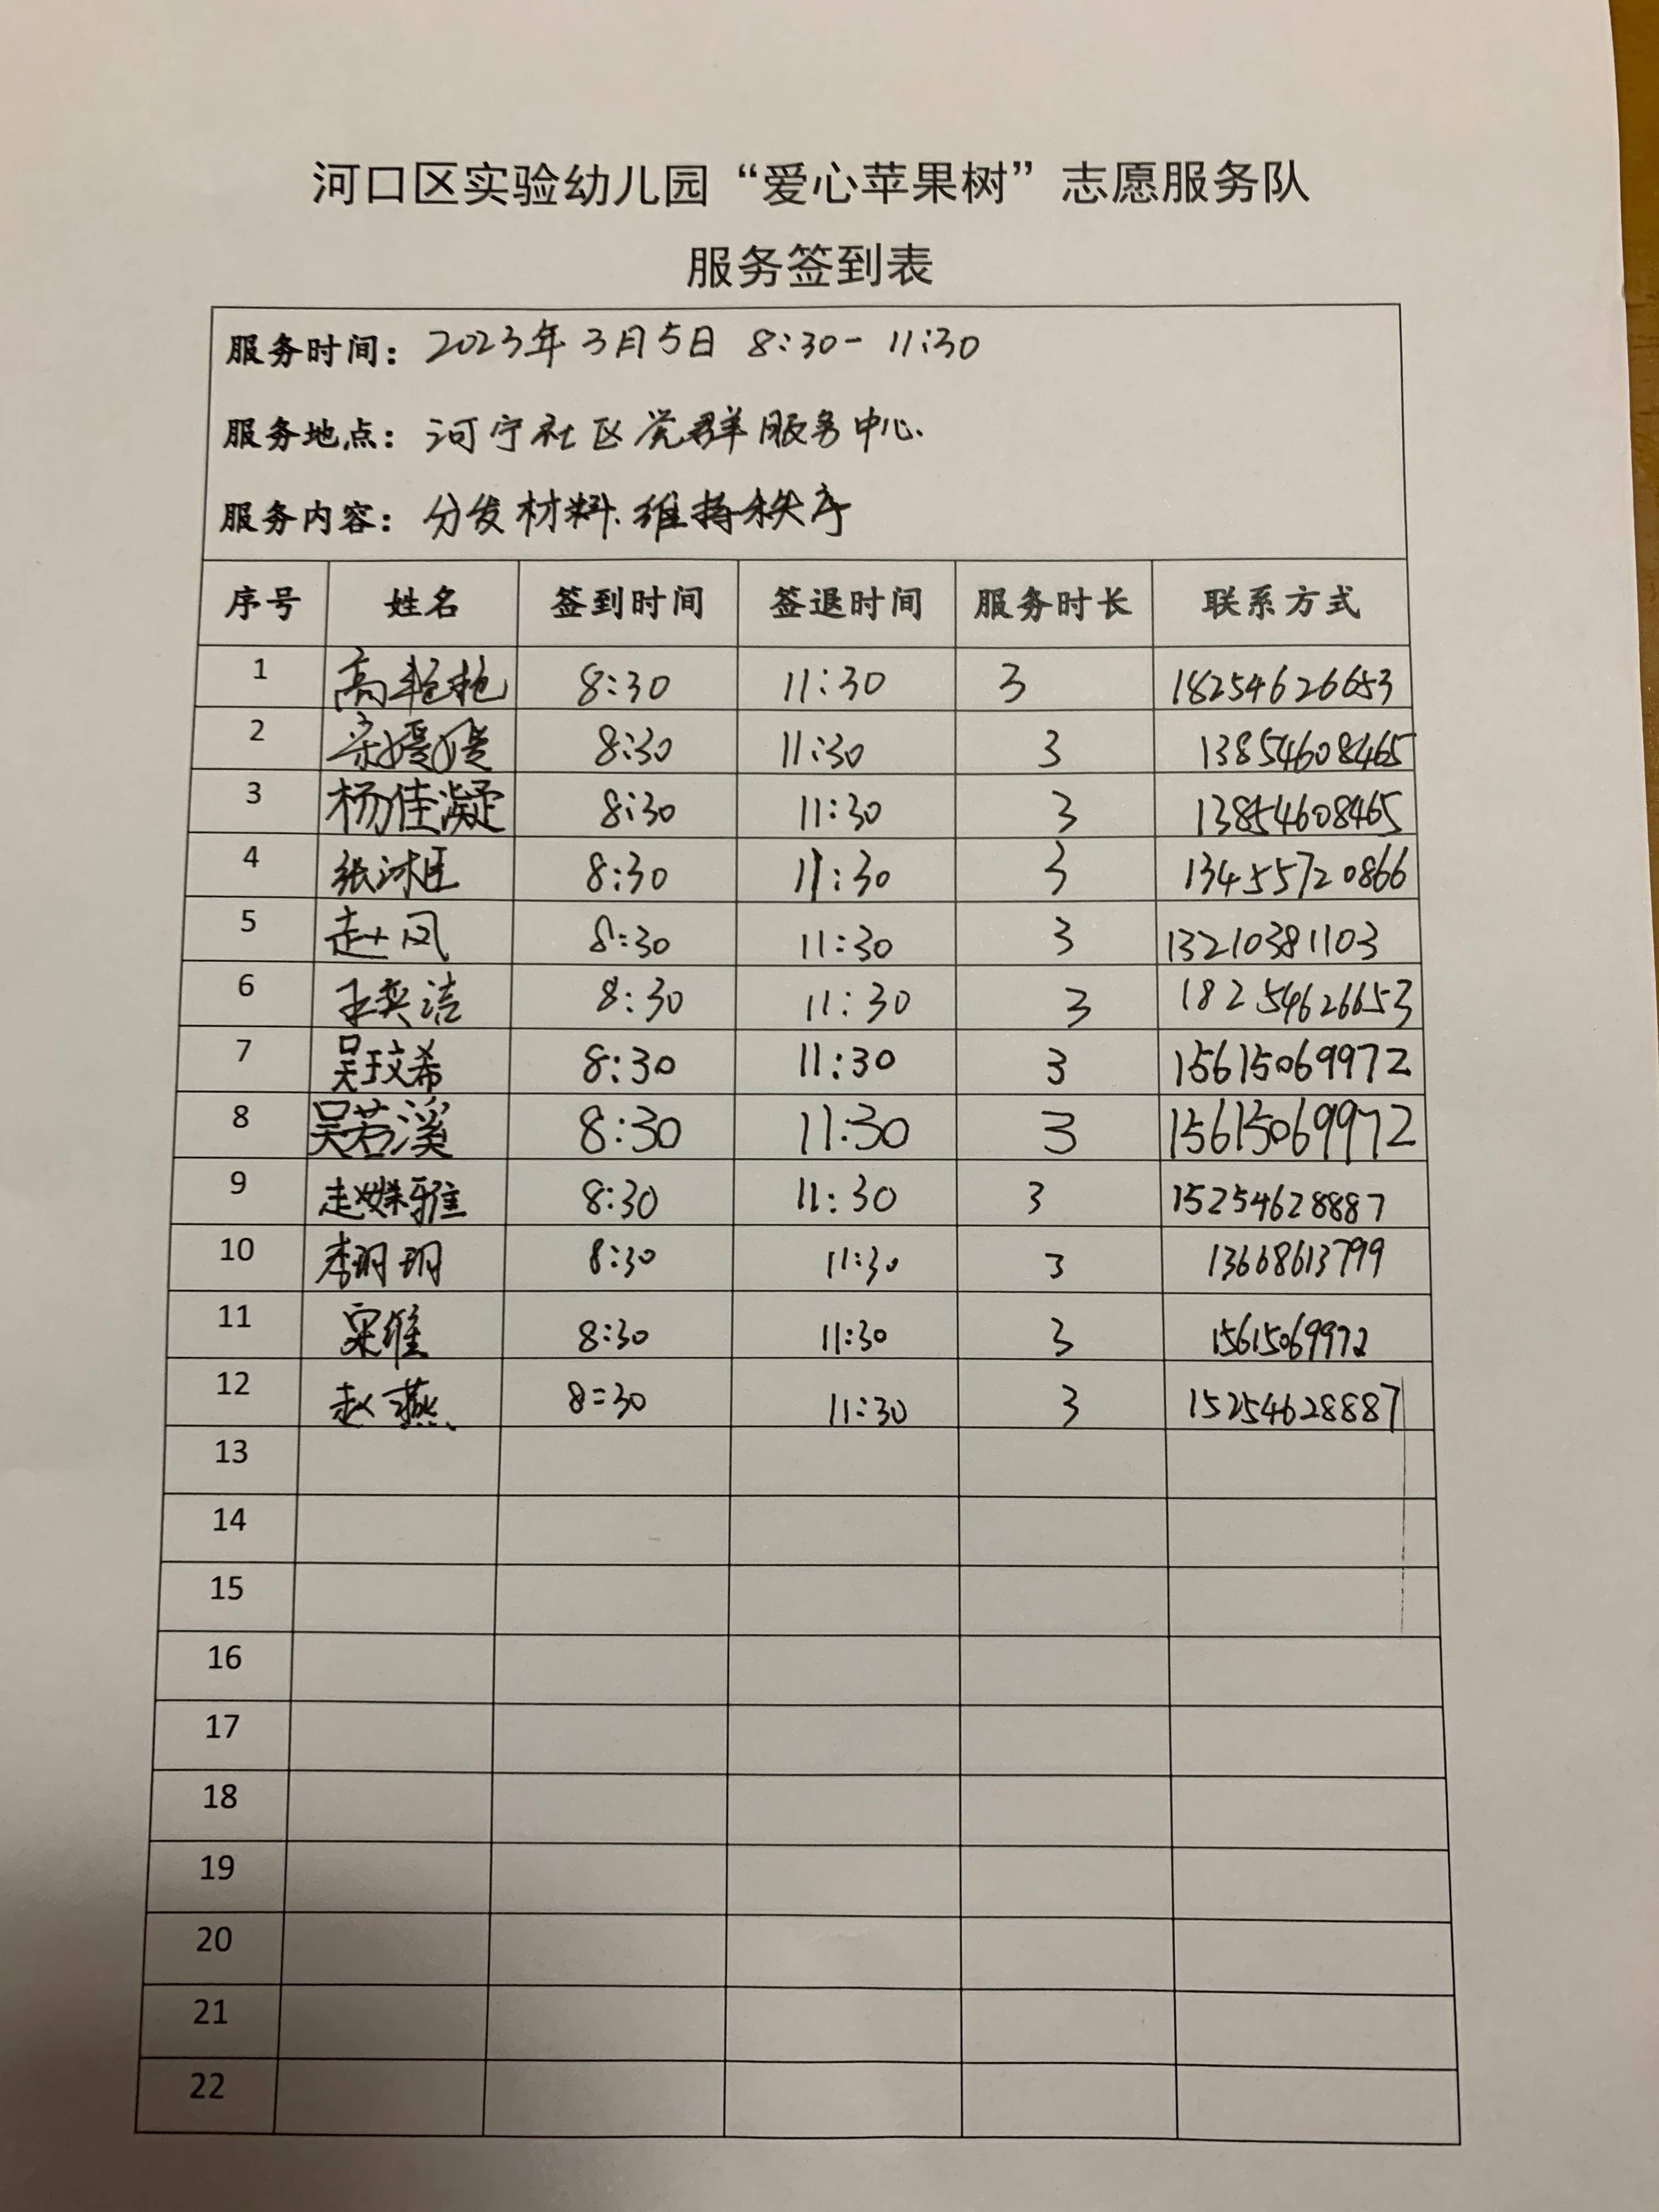 河口区实验幼儿园“爱心苹果树”志愿服务队
服务签到表
服务时间：2023年3月5日 8:30-11:30
服务地点：河宁社区党群服务中心.
服务内容：分发材料.维持秩序
序号 姓名 签到时间 签退时间 服务时长 联系方式
1 高艳艳 8:30 11:30 3 18254626653
2 宋媛媛 8:30 11:30 3 13854608465
3 杨佳凝 8:30 11:30 3 13854608465
4 张沐臣 8:30 11:30 3 13455720866
5 赵凤 8:30 11:30 3 13210381103
6 王奕洁 8:30 11:30 3 18254626653
7 吴玟希 8:30 11:30 3 15615069972
8 吴若溪 8:30 11:30 3 15615069972
9 赵姝雅 8:30 11:30 3 15254628887
10 李玥玥 8:30 11:30 3 13668613799
11 8:30 11:30 3 15615069972
12 赵燕 8:30 11:30 3 15254628887
13
14
15
16
17
18
19
20
21
22